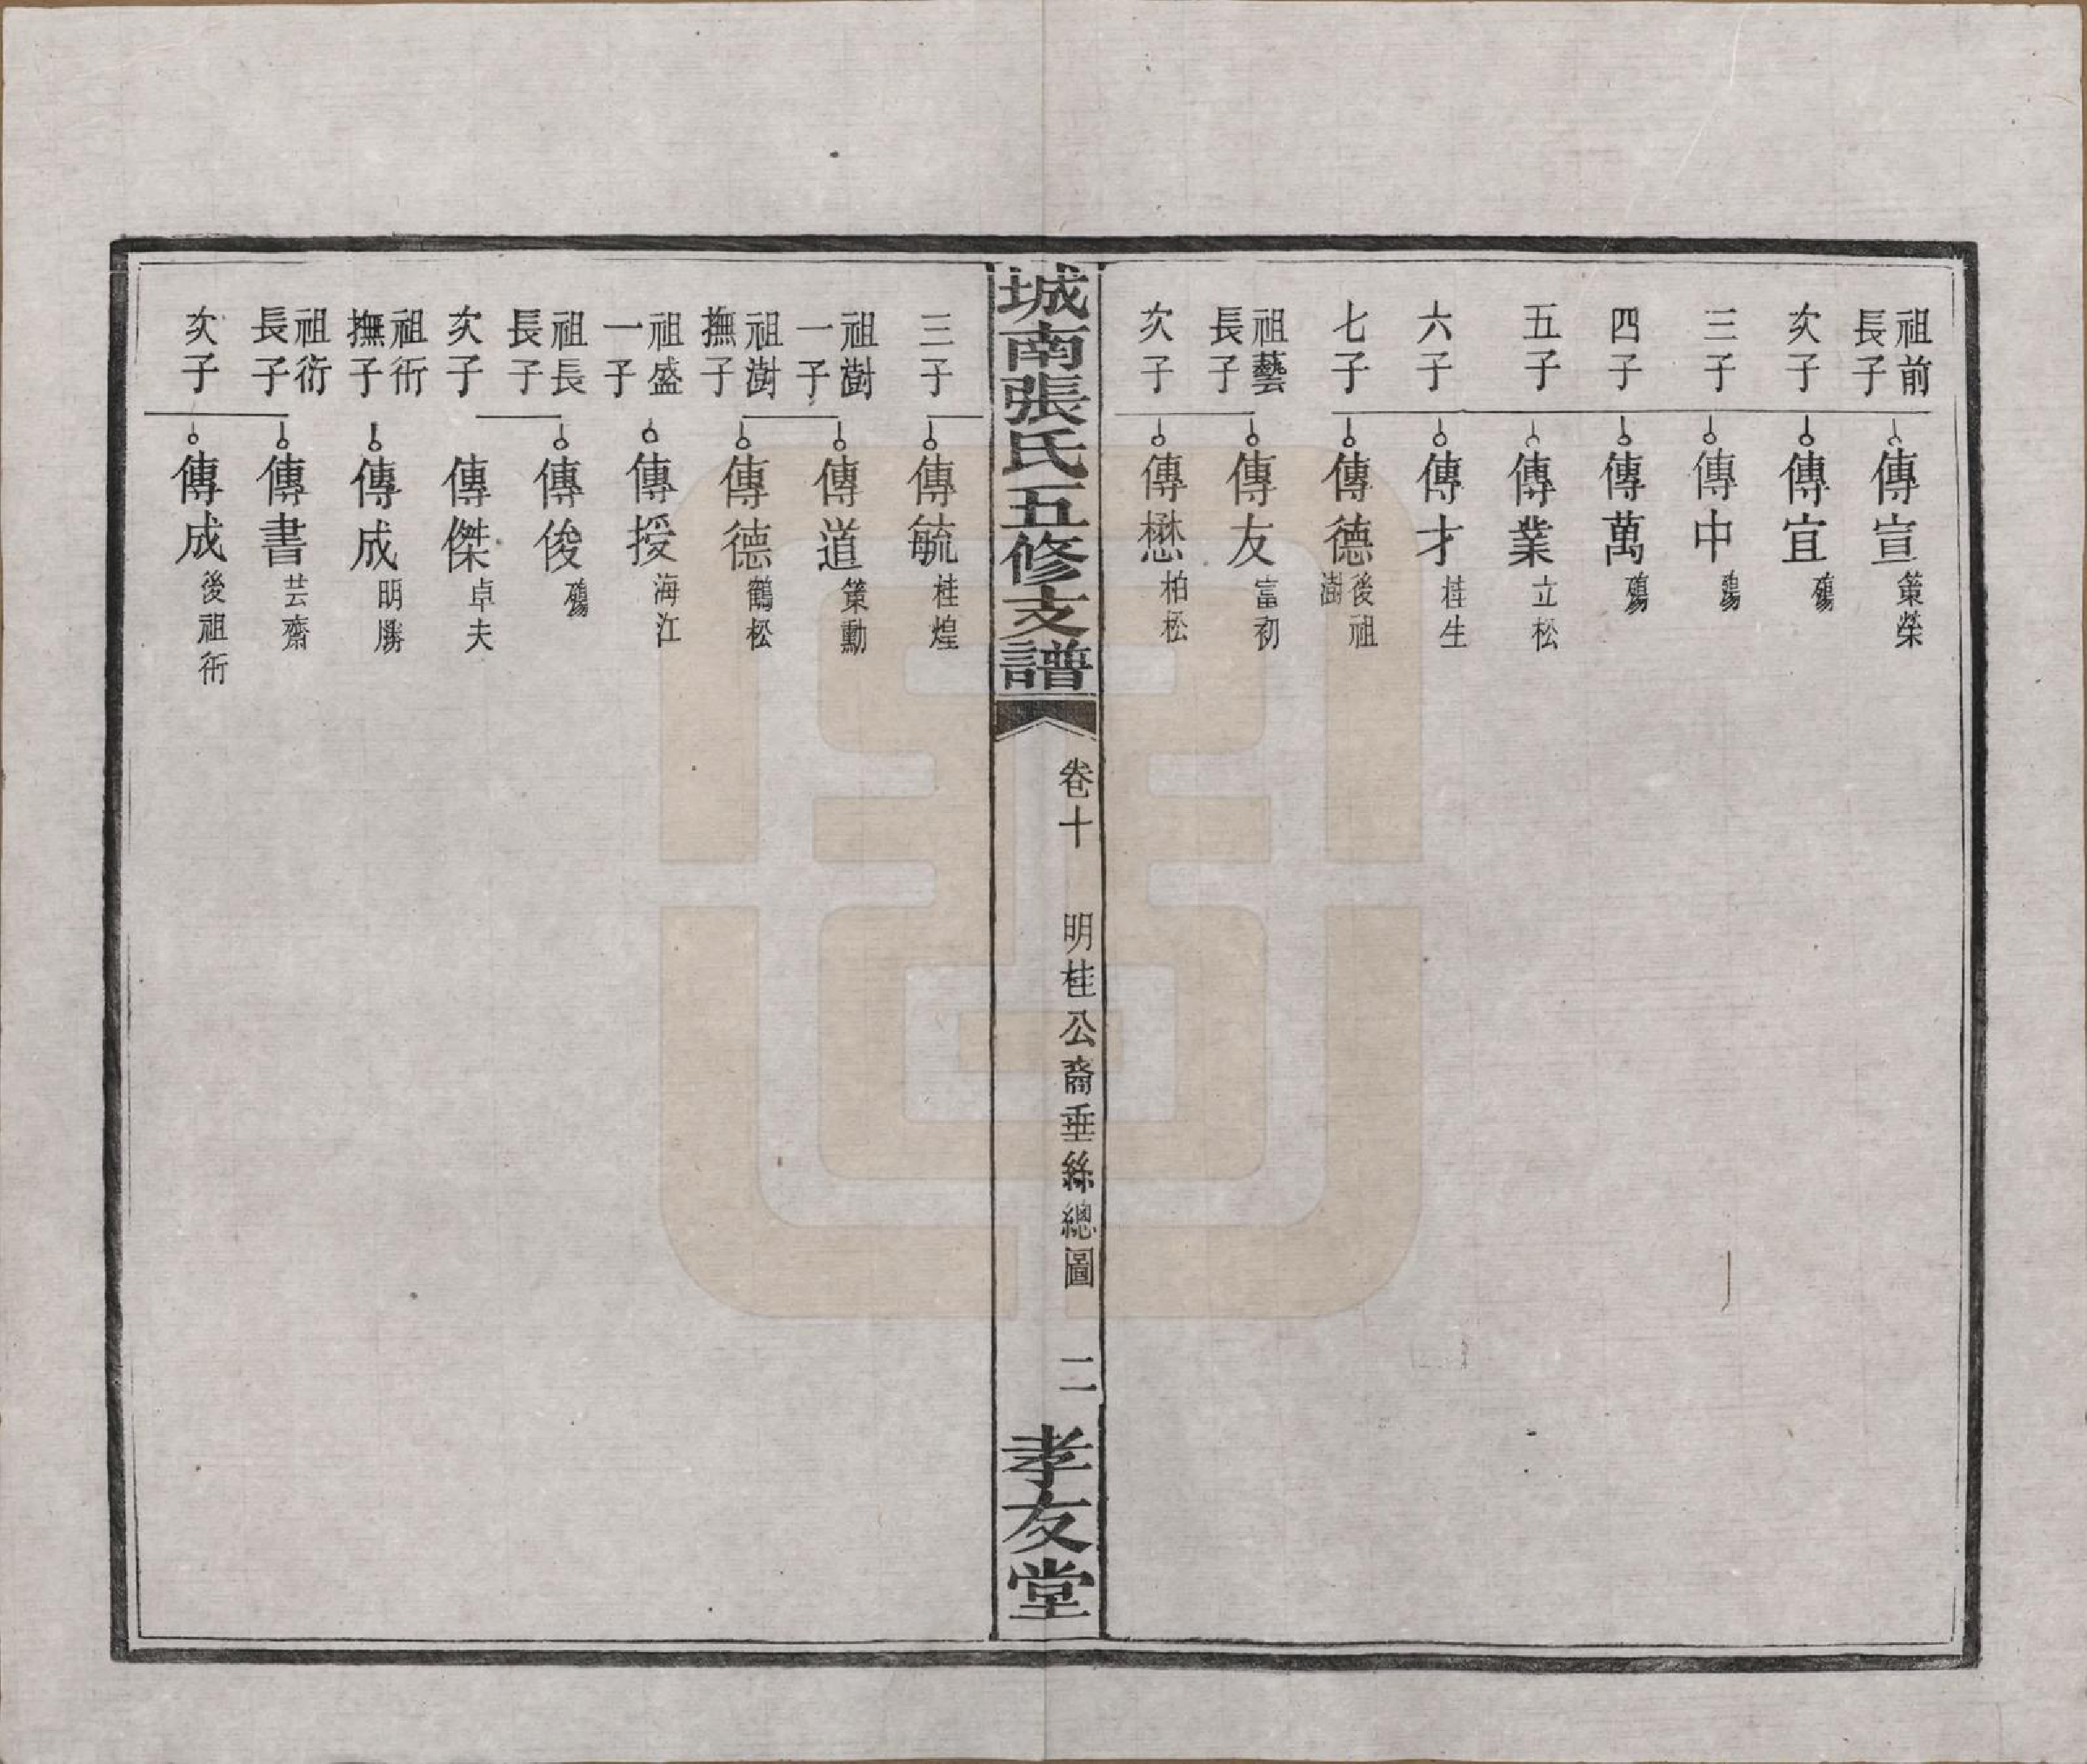 祖前長子 傳宣 策榮
次子 傳宜 殤
三子 傳中 殤
四子 傳萬 殤
五子 傳業 立松
六子 傳才 桂生
七子 傳德 後祖澍
祖藝長子 傳友 富初
次子 傳懋 柏松
城南張氏五修支譜 卷十 明桂公裔垂絲總圖 二 孝友堂
三子 傳毓 桂煌
祖澍一子 傳道 策勳
祖澍撫子 傳德 鶴松
祖盛一子 傳授 海江
祖長長子 傳俊 殤
次子 傳傑 卓夫
祖術撫子 傳成 明勝
祖衍長子 傳書 芸齋
次子 傳成 後祖術